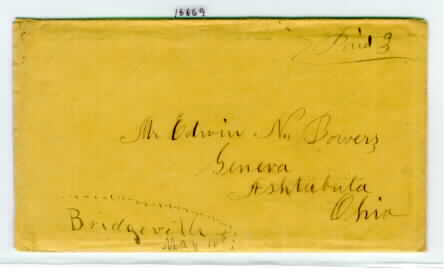 Paid 3
Mr Edwin N. Bowers
Geneva
Ashtabula
Ohio
Bridgeville
May